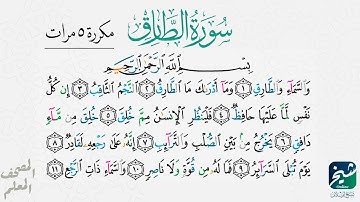 سُورَةُ الطَّارِقِ
مكررة ٥ مرات
بِسْمِ اللَّهِ الرَّحْمَٰنِ الرَّحِيمِ
وَالسَّمَاءِ وَالطَّارِقِ ١ وَمَا أَدْرَىٰكَ مَا الطَّارِقُ ٢ النَّجْمُ الثَّاقِبُ ٣ إِن كُلُّ
نَفْسٍ لَّمَّا عَلَيْهَا حَافِظٌ ٤ فَلْيَنظُرِ الْإِنسَٰنُ مِمَّ خُلِقَ ٥ خُلِقَ مِن مَّآءٍ
دَافِقٍ ٦ يَخْرُجُ مِنۢ بَيْنِ الصُّلْبِ وَالتَّرَآئِبِ ٧ إِنَّهُۥ عَلَىٰ رَجْعِهِۦ لَقَادِرٌ ٨
يَوْمَ تُبْلَى السَّرَآئِرُ ٩ فَمَا لَهُۥ مِن قُوَّةٍ وَلَا نَاصِرٍ ١٠ وَالسَّمَآءِ ذَاتِ الرَّجْعِ ١١
المصحف
المعلم
شيخ